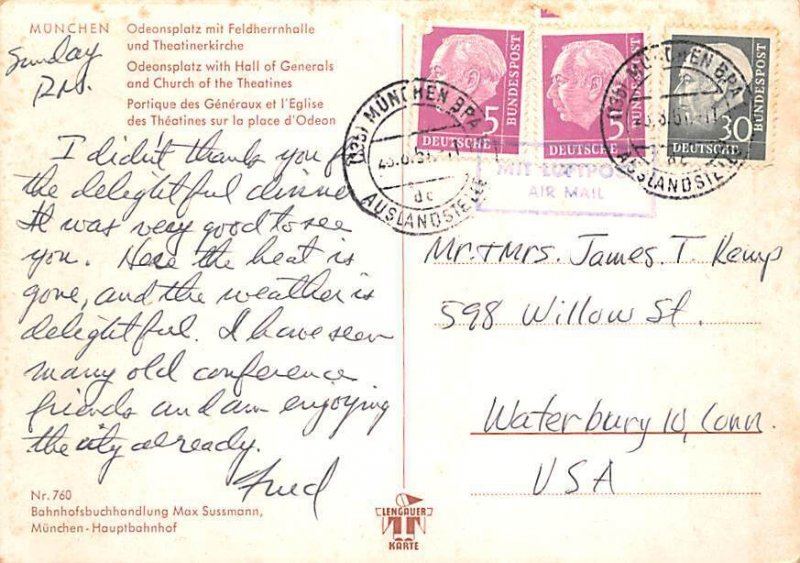 MÜNCHEN Odeonsplatz mit Feldherrnhalle
und Theatinerkirche
Odeonsplatz with Hall of Generals
and Church of the Theatines
Portique des Généraux et l'Eglise
des Théatines sur la place d'Odeon
Sunday
P.M.
I didn't thank you for
the delightful dinner
It was very good to see
you. Here the heat is
gone, and the weather is
delightful. I have seen
many old conference
friends and am enjoying
the city already.
Fred
Nr. 760
Bahnhofsbuchhandlung Max Sussmann,
München-Hauptbahnhof
LENGAUER
KARTE
5
DEUTSCHE
BUNDESPOST
5
DEUTSCHE
BUNDESPOST
30
DEUTSCHE
BUNDESPOST
(13b) MÜNCHEN BPA
dc
AUSLANDSTELLE
(13b) MÜNCHEN BPA
AUSLANDSTELLE
MIT LUFTPOST
AIR MAIL
Mr. + Mrs. James T. Kemp
598 Willow St.
Waterbury 10, Conn.
USA